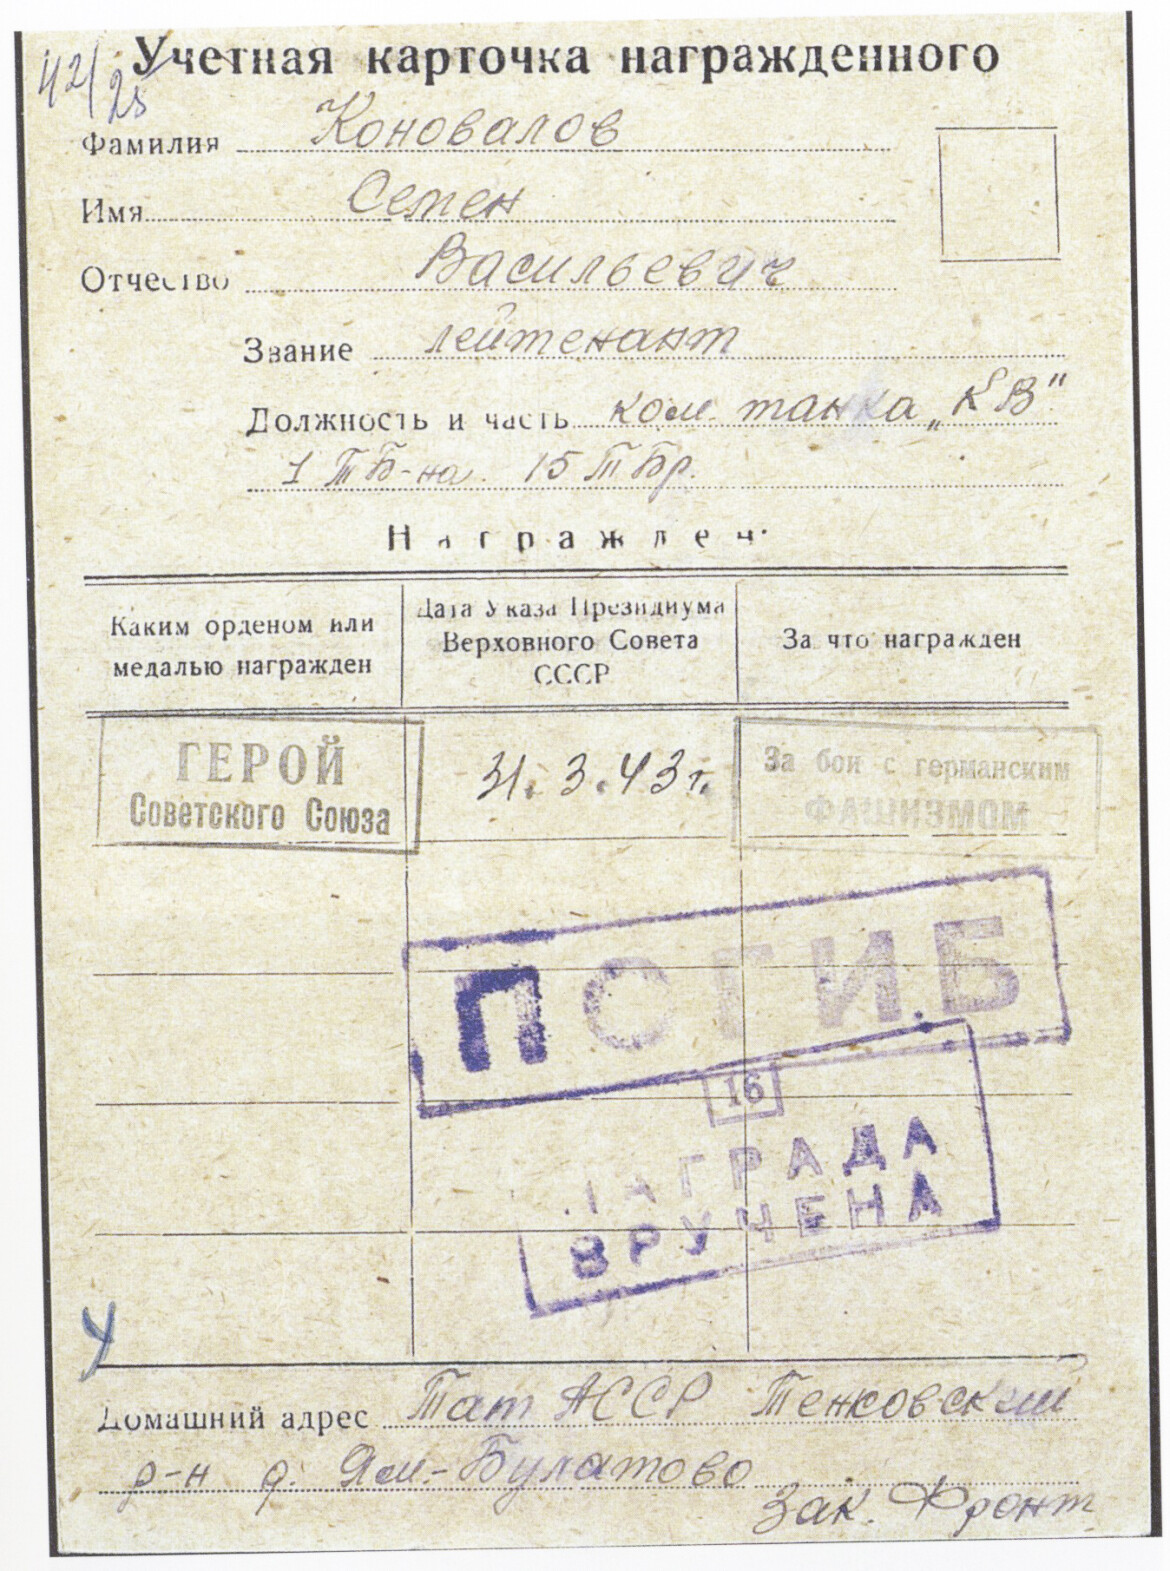 42/25
Учетная карточка награжденного
Фамилия Коновалов
Имя Семен
Отчество Васильевич
Звание лейтенант
Должность и часть ком. танка „КВ"
1 ТБ-на. 15 ТБр.
Награжден:
Каким орденом или
медалью награжден
Дата Указа Президиума
Верховного Совета
СССР
За что награжден
ГЕРОЙ
Советского Союза
31.3.43 г.
За бои с германским
ФАШИЗМОМ
ПОГИБ
16
НАГРАДА
ВРУЧЕНА
У
Домашний адрес Тат АССР Тенковский
р-н д. Ям.-Булатово
Зак. Фронт